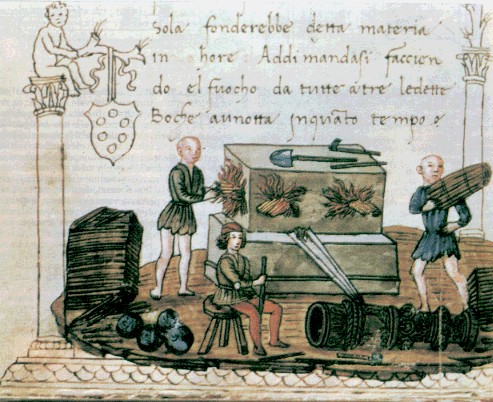 sola fonderebbe detta materia
in hore : Addimandasi faccien
do el fuocho da tutte a tre le dette
Boche a un otta in quāto tempo ?